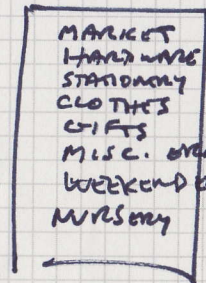 MARKET
HARDWARE
STATIONARY
CLOTHES
GIFTS
MISC.
WEEKEND
NURSERY